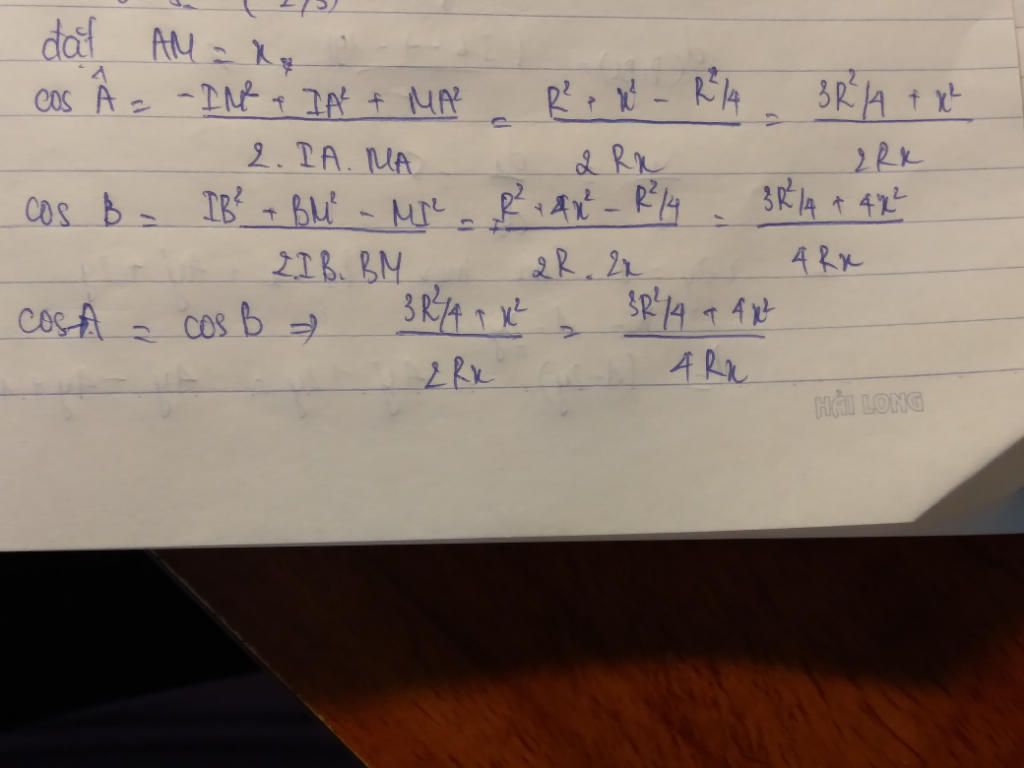 (2/3)
đặt AM = x,
cos Â = -IM² + IA² + MA² / 2.IA.MA = R² + x² - R²/4 / 2Rx = 3R²/4 + x² / 2Rx
cos B = IB² + BM² - MI² / 2IB.BM = R² + 4x² - R²/4 / 2R.2x = 3R²/4 + 4x² / 4Rx
cos A = cos B ⇒ 3R²/4 + x² / 2Rx = 3R²/4 + 4x² / 4Rx
HẢI LONG